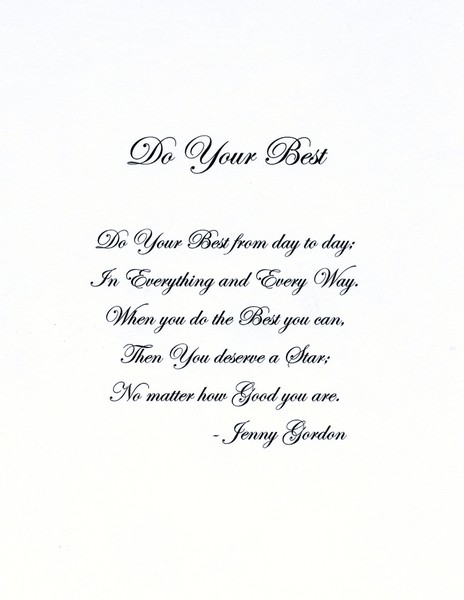 Do Your Best
Do Your Best from day to day;
In Everything and Every Way.
When you do the Best you can,
Then You deserve a Star;
No matter how Good you are.
- Jenny Gordon